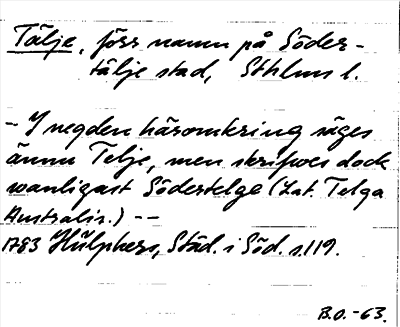 Tälje, förr namn på Söder-
tälje stad, Sthlms l.
- I negden häromkring säges
ännu Telje, men skrifwes dock
wanligast Södertelge (Lat. Telga
Australis.) --
1783 Hülphers, Städ. i Söd. s. 119.
B.O. -63.